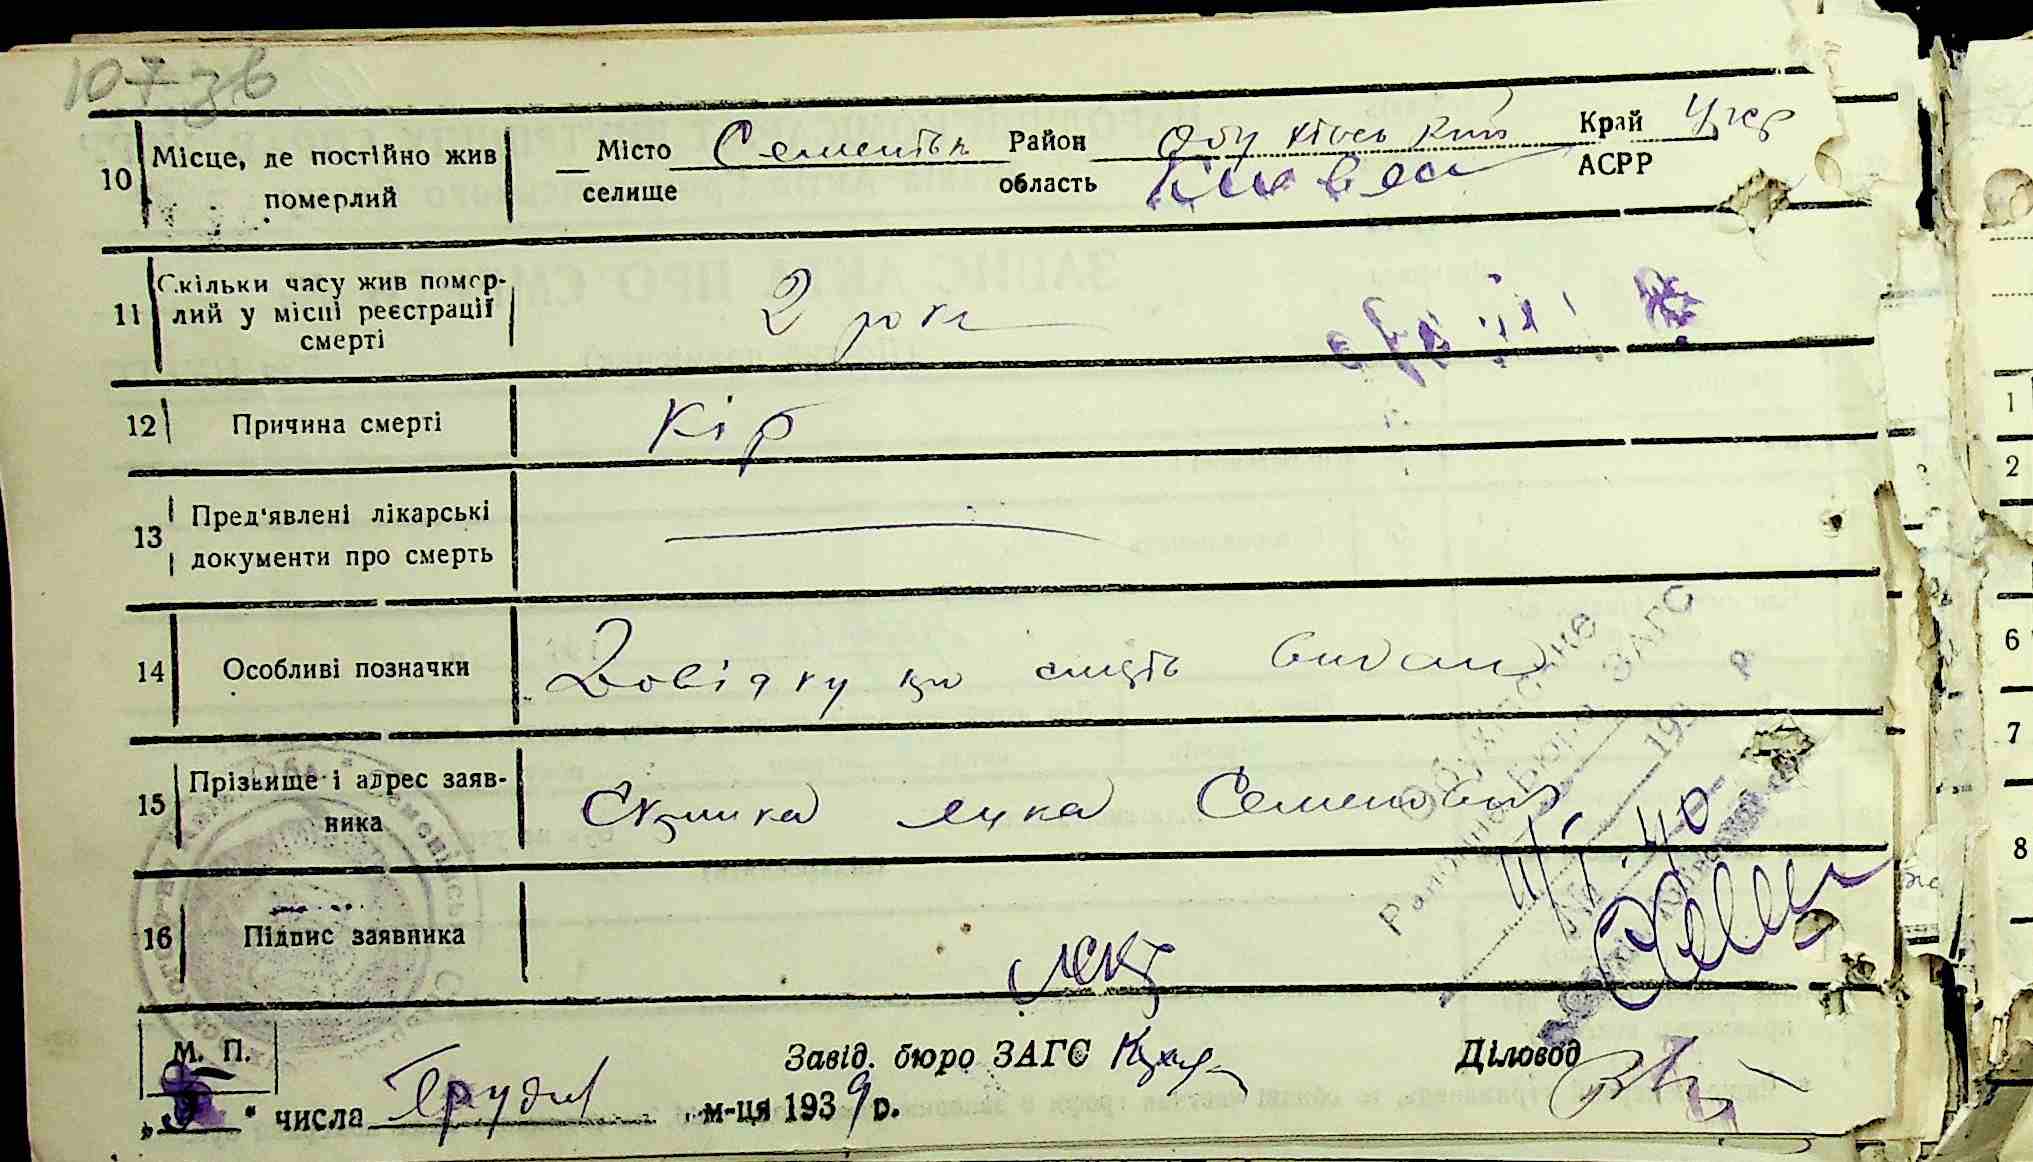 107 зв
10 Місце, де постійно жив померлий Місто селище Район Обухівський область Київська Край АСРР УРСР
11 Скільки часу жив помер-
лий у місці реєстрації
смерті 2 роки
12 Причина смерті Кір
13 Пред'явлені лікарські
документи про смерть
14 Особливі позначки Довідку про смерть видано
15 Прізвище і адрес заяв-
ника Семенович
16 Підпис заявника
Обухівське
Районне Бюро ЗАГС
193 р.
М. П.
Завід. бюро ЗАГС
Діловод
„9" числа Грудня м-ця 1939 р.